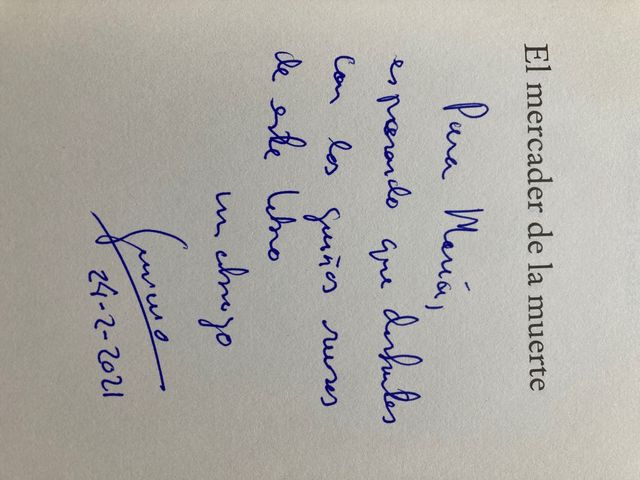 El mercader de la muerte
Para María,
esperando que disfrutes
con los guiños rusos
de este libro
un abrazo
24-2-2021